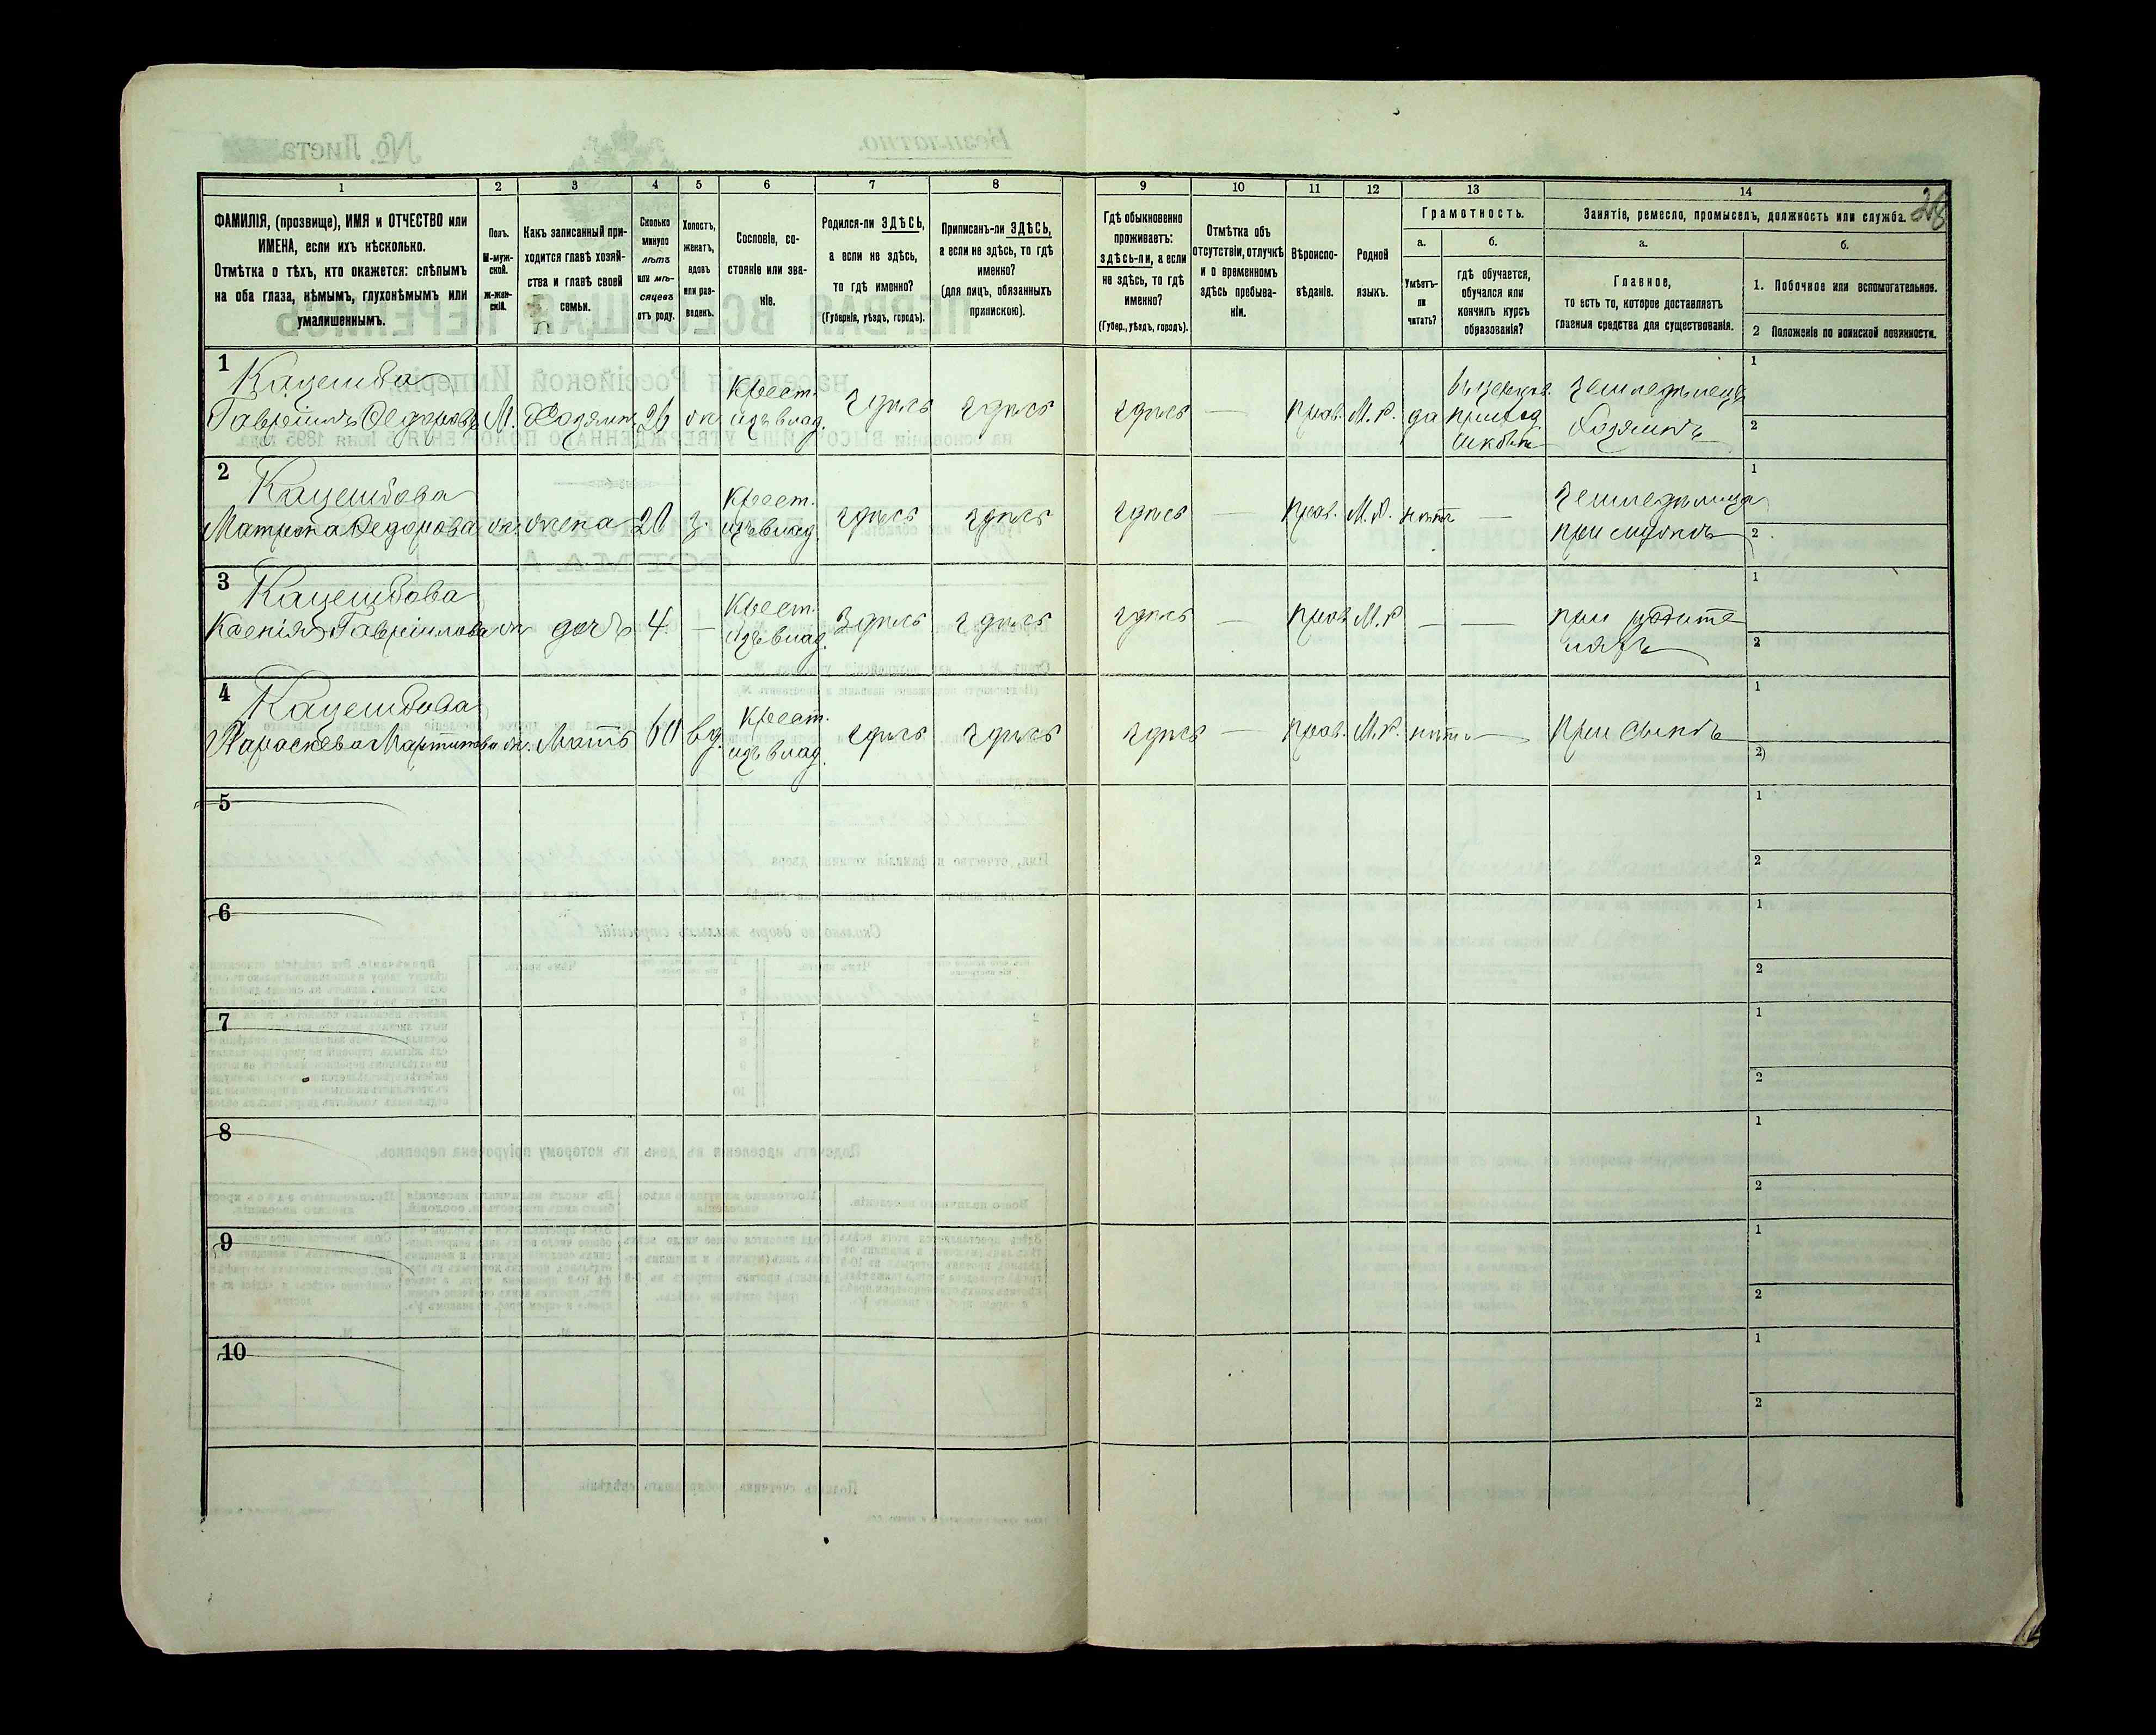 28
1 2 3 4 5 6 7 8 9 10 11 12 13 14
ФАМИЛІЯ, (прозвище), ИМЯ и ОТЧЕСТВО или
ИМЕНА, если ихъ нѣсколько.
Отмѣтка о тѣхъ, кто окажется: слѣпымъ
на оба глаза, нѣмымъ, глухонѣмымъ или
умалишеннымъ.
Полъ.
М-муж-
ской.
Ж-жен-
скій.
Какъ записанный при-
ходится главѣ хозяй-
ства и главѣ своей
семьи.
Сколько
минуло
лѣтъ
или мѣ-
сяцевъ
отъ роду.
Холостъ,
женатъ,
вдовъ
или раз-
веденъ.
Сословіе, со-
стояніе или зва-
ніе.
Родился-ли ЗДѢСЬ,
а если не здѣсь,
то гдѣ именно?
(Губернія, уѣздъ, городъ).
Приписанъ-ли ЗДѢСЬ,
а если не здѣсь, то гдѣ
именно?
(для лицъ, обязанныхъ
припискою).
Гдѣ обыкновенно
проживаетъ:
здѣсь-ли, а если
не здѣсь, то гдѣ
именно?
(Губер., уѣздъ, городъ).
Отмѣтка объ
отсутствіи, отлучкѣ
и о временномъ
здѣсь пребыва-
ніи.
Вѣроиспо-
вѣданіе.
Родной
языкъ.
Грамотность.
а.
Умѣетъ-
ли
читать?
б.
гдѣ обучается,
обучался или
кончилъ курсъ
образованія?
Занятіе, ремесло, промыселъ, должность или служба.
а.
Главное,
то есть то, которое доставляетъ
главныя средства для существованія.
б.
1. Побочное или вспомогательное.
2 Положеніе по воинской повинности.
1 Крест. въ церков. земледѣлецъ 1
М. Хозяинъ 26 ж. изъ влад. здѣсь здѣсь здѣсь — прав. М.Р. да приход. хозяинъ 2
школѣ
2 Крест. земледѣлица 1
Матрона Ѳедорова ж. жена 20 з. изъ влад. здѣсь здѣсь здѣсь — прав. М.Р. нѣтъ — при мужѣ 2
3 Крест. 1
Ксенія Гавріилова ж дочь 4 — изъ влад. Здѣсь здѣсь здѣсь — прав. М.Р — — при родите
ляхъ 2
4 Крест. 1
Параскева Мартинова ж. Мать 60 вд. изъ влад. здѣсь здѣсь здѣсь — прав. М.Р. нѣтъ — При сынѣ 2
5 1
2
6 1
2
7 1
2
8 1
2
9 1
2
10 1
2